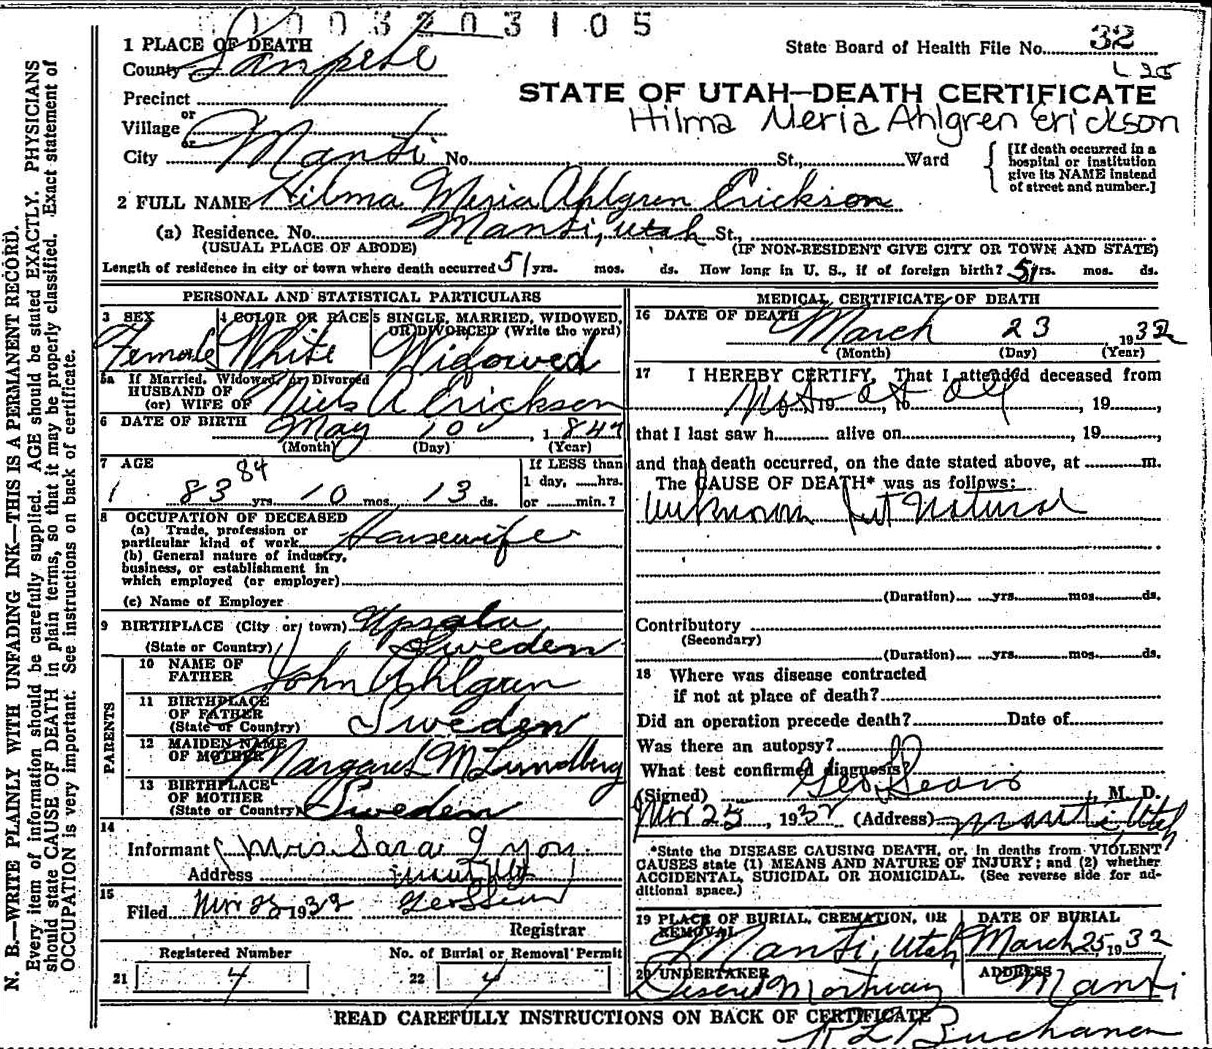 0003203105
1 PLACE OF DEATH
County Sanpete
State Board of Health File No. 32
L 25
Precinct
or
Village
or
STATE OF UTAH—DEATH CERTIFICATE
Hilma Meria Ahlgren Erickson
City Manti No. St., Ward
[If death occurred in a hospital or institution give its NAME instead of street and number.]
2 FULL NAME Hilma Meria Ahlgren Erickson
(a) Residence. No. Manti, Utah St.,
(USUAL PLACE OF ABODE) (IF NON-RESIDENT GIVE CITY OR TOWN AND STATE)
Length of residence in city or town where death occurred 51 yrs. mos. ds. How long in U. S., if of foreign birth? 51 yrs. mos. ds.
PERSONAL AND STATISTICAL PARTICULARS
3 SEX
Female
4 COLOR OR RACE
White
5 SINGLE, MARRIED, WIDOWED, OR DIVORCED (Write the word)
Widowed
5a If Married, Widowed, or Divorced
HUSBAND OF
(or) WIFE OF Niels A Erickson
6 DATE OF BIRTH May 10, 1847
(Month) (Day) (Year)
7 AGE
84
83 yrs. 10 mos. 13 ds.
If LESS than
1 day, hrs.
or min.?
8 OCCUPATION OF DECEASED
(a) Trade, profession or
particular kind of work Housewife
(b) General nature of industry,
business, or establishment in
which employed (or employer)
(c) Name of Employer
9 BIRTHPLACE (City or town) Upsala
(State or Country) Sweden
PARENTS
10 NAME OF
FATHER John Ahlgren
11 BIRTHPLACE
OF FATHER
(State or Country) Sweden
12 MAIDEN NAME
OF MOTHER Margaret M Lundberg
13 BIRTHPLACE
OF MOTHER
(State or Country) Sweden
14
Informant Mrs. Sara Lyon
Address Manti Ut
15
Filed Mar 25 1932
Registrar
Registered Number
21 4
No. of Burial or Removal Permit
22 4
MEDICAL CERTIFICATE OF DEATH
16 DATE OF DEATH
March 23, 1932
(Month) (Day) (Year)
17 I HEREBY CERTIFY, That I attended deceased from
Not at all 19, to, 19,
that I last saw h alive on, 19
and that death occurred, on the date stated above, at m.
The CAUSE OF DEATH* was as follows:
Unknown but Natural
(Duration) yrs. mos. ds.
Contributory
(Secondary)
(Duration) yrs. mos. ds.
18 Where was disease contracted
if not at place of death?
Did an operation precede death? Date of
Was there an autopsy?
What test confirmed diagnosis?
(Signed) M. D.
Mar 25, 1932 (Address) Manti, Utah
*State the DISEASE CAUSING DEATH, or, in deaths from VIOLENT
CAUSES state (1) MEANS AND NATURE OF INJURY; and (2) whether
ACCIDENTAL, SUICIDAL OR HOMICIDAL. (See reverse side for additional space.)
19 PLACE OF BURIAL, CREMATION, OR
REMOVAL
Manti, Utah
DATE OF BURIAL
March 25, 1932
20 UNDERTAKER
Deseret Mortuary
ADDRESS
Manti
READ CAREFULLY INSTRUCTIONS ON BACK OF CERTIFICATE
R L Buchanan
N. B.—WRITE PLAINLY WITH UNFADING INK—THIS IS A PERMANENT RECORD.
Every item of information should be carefully supplied. AGE should be stated EXACTLY. PHYSICIANS
should state CAUSE OF DEATH in plain terms, so that it may be properly classified. Exact statement of
OCCUPATION is very important. See instructions on back of certificate.